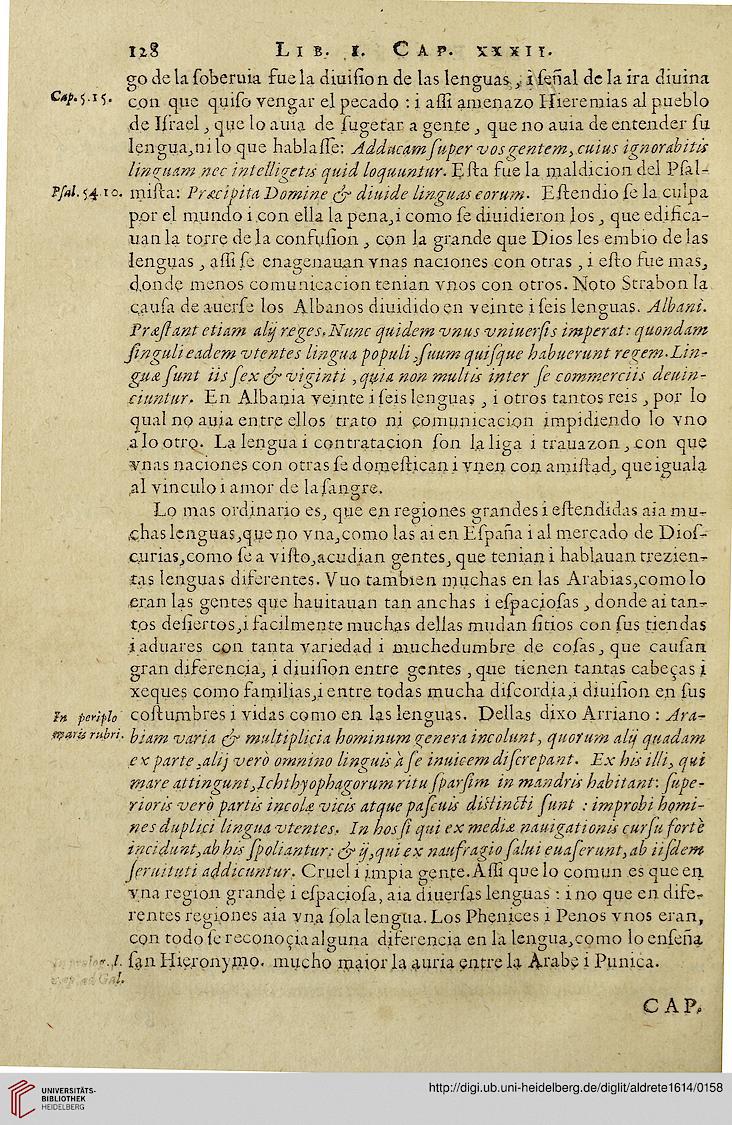 128 LIB. I. CAP. XXXII.
go de la ſoberuia fue la diuiſion de las lenguas, i ſeñal de la ira diuina
Cap. 5. 15. con que quiſo vengar el pecado : i aſſi amenazo Hieremias al pueblo
de Iſrael, que lo auia de ſugetar a gente, que no auia de entender ſu
lengua, ni lo que hablaſſe: Adducam ſuper vos gentem, cuius ignorabitis
linguam nec intelligetis quid loquuntur. Eſta fue la maldicion del Pſal-
Pſal. 54. 10. miſta: Præcipita Domine & diuide linguas eorum. Eſtendio ſe la culpa
por el mundo i con ella la pena, i como ſe diuidieron los, que edifica-
uan la torre de la confuſion, con la grande que Dios les embio de las
lenguas, aſſi ſe enagenauan vnas naciones con otras, i eſto fue mas,
donde menos comunicacion tenian vnos con otros. Noto Strabon la
cauſa de auerſe los Albanos diuidido en veinte i ſeis lenguas. Albani.
Præſtant etiam alij reges. Nunc quidem vnus vniuerſis imperat: quondam
ſinguli eadem vtentes lingua populi, ſuum quiſque habuerunt regem. Lin-
guæ ſunt iis ſex & viginti, quia non multis inter ſe commerciis deuin-
ciuntur. En Albania veinte i ſeis lenguas, i otros tantos reis, por lo
qual no auia entre ellos trato ni comunicacion impidiendo lo vno
a lo otro. La lengua i contratacion ſon la liga i trauazon, con que
vnas naciones con otras ſe domeſtican i vnen con amiſtad, que iguala
al vinculo i amor de la ſangre.
Lo mas ordinario es, que en regiones grandes i eſtendidas aia mu-
chas lenguas, que no vna, como las ai en Eſpaña i al mercado de Dioſ-
curias, como ſe a viſto, acudian gentes, que tenian i hablauan trezien-
tas lenguas diferentes. Vuo tambien muchas en las Arabias, como lo
eran las gentes que hauitauan tan anchas i eſpacioſas, donde ai tan-
tos deſiertos, i facilmente muchas dellas mudan ſitios con ſus tiendas
i aduares con tanta variedad i muchedumbre de coſas, que cauſan
gran diferencia, i diuiſion entre gentes, que tienen tantas cabeças i
xeques como familias, i entre todas mucha diſcordia, i diuiſion en ſus
In periplo coſtumbres i vidas como en las lenguas. Dellas dixo Arriano : Ara-
maris rubri. biam varia & multiplicia hominum genera incolunt, quorum alij quadam
ex parte, alij verò omnino linguis à ſe inuicem diſcrepant. Ex his illi, qui
mare attingunt, Ichthyophagorum ritu ſparſim in mandris habitant: ſupe-
rioris verò partis incolæ vicis atque paſcuis diſtincti ſunt : improbi homi-
nes duplici lingua vtentes. In hos ſi qui ex mediæ nauigationis curſu fortè
incidunt, ab his ſpoliantur: & ij, qui ex naufragio ſalui euaſerunt, ab iiſdem
ſeruituti addicuntur. Cruel i impia gente. Aſſi que lo comun es que en
vna region grande i eſpacioſa, aia diuerſas lenguas : i no que en dife-
rentes regiones aia vna ſola lengua. Los Phenices i Penos vnos eran,
con todo ſe reconocia alguna diferencia en la lengua, como lo enſeña
ſan Hieronymo. mucho maior la auria entre la Arabe i Punica.
CAP.
UNIVERSITÄTS-
BIBLIOTHEK
HEIDELBERG
http://digi.ub.uni-heidelberg.de/diglit/aldrete1614/0158